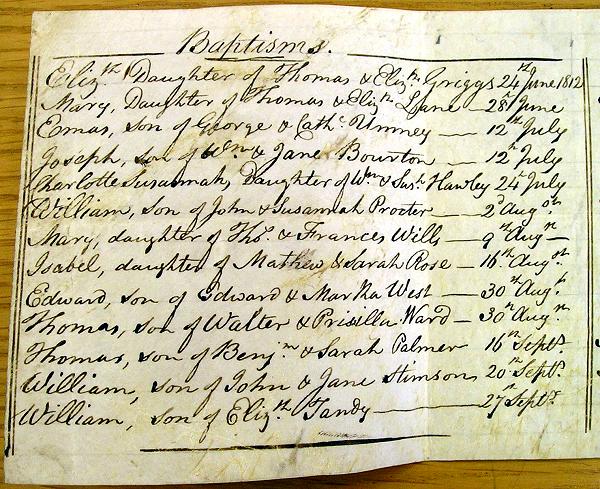 Baptisms.
Elizth Daughter of Thomas & Elizth Griggs 24th June 1812
Mary, Daughter of Thomas & Elizth Lane — 28th June
Emas, son of George & Cathe Ummey — 12th July
Joseph, son of Wm & Jane Bourton — 12th July
Charlotte Susannah, Daughter of Wm & Sush Hawley 24th July
William, son of John & Susannah Procter — 2d Augst
Mary, daughter of Thos. & Frances Wills — 9th Augst —
Isabel, daughter of Mathew & Sarah Rose — 16th Augst
Edward, son of Edward & Martha West — 30th Augst
Thomas, son of Walter & Prisilla Ward — 30th Augst
Thomas, son of Benjm & Sarah Palmer 16th Septr.
William, son of John & Jane Stimson 20th Septr.
William, son of Elizth Tandy — 27th Septr.